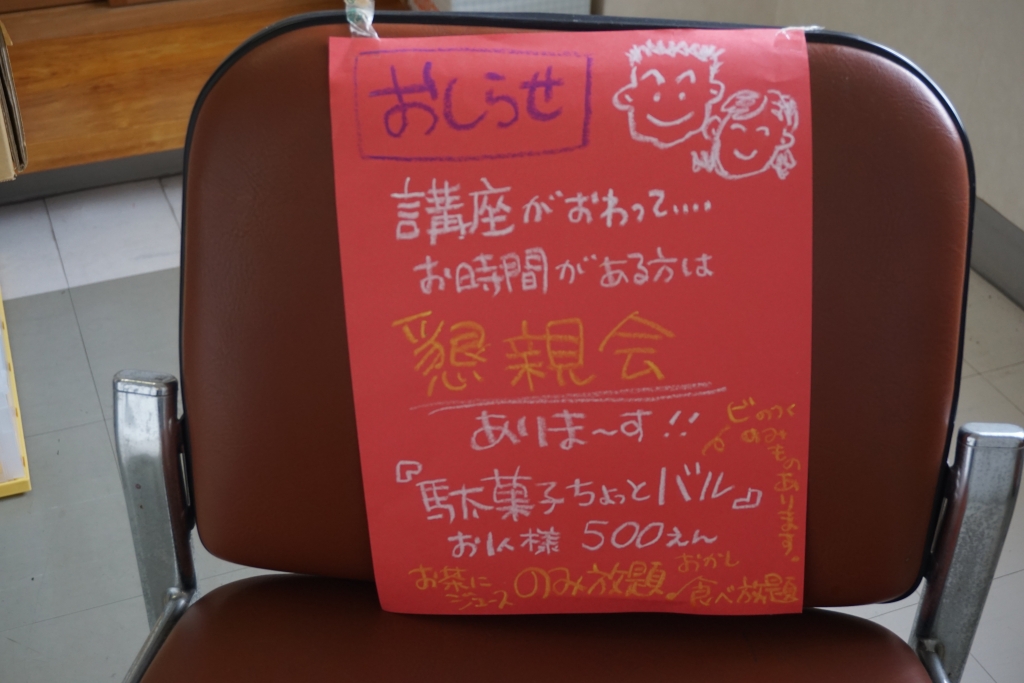 おしらせ
講座がおわって....
お時間がある方は
懇親会
ありま～す!!
『駄菓子ちょっとバル』
お1人様 500えん
ビのつく
のみものあります。
お茶に
ジュース
のみ放題♪
おかし
食べ放題